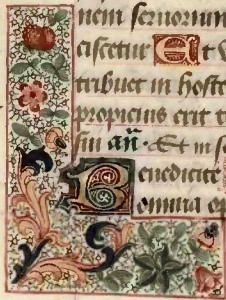 nem seruorum
ciscetur Et v
tribuet in hoste
propicius erit t
sui añ. Et in s
Benedicite
omnia op